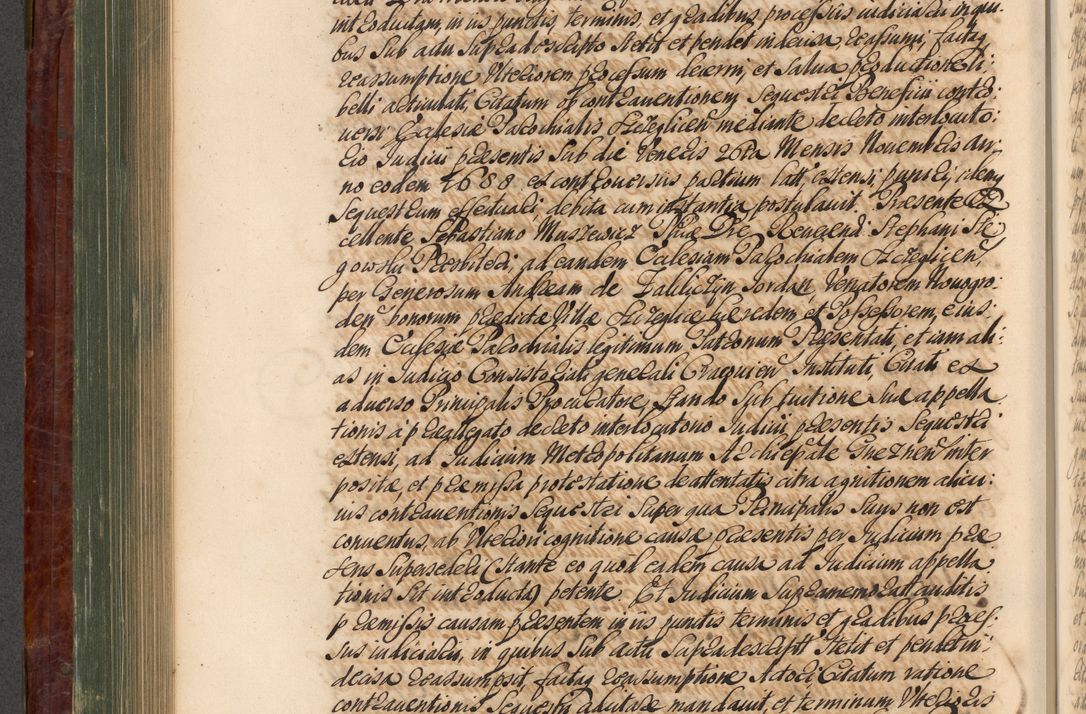 int Eoductam, in iis punctis, terminis, et gradibus processus iudiciarii in qui-
bus Sub actu Supradescripto Stetit et pendet indecisa, reasumi, factaq
reassumptione Ulteriorem processum decerni, et Salva productione li-
belli articulati, Citatum ob contraventionem Sequestri Beneficii contro:
versi Ecclesiæ Parochialis Szczeglicen̄ mediante decreto interlocuto:
rio Iudicii præsentis Sub die Veneris 26ta Mensis Novembris An:
no eodem 1688 ex controversiis partium lati, extensi, puniri, idemq
Sequestrum effectuari, debita cum instantia postulavit. Præsente Ex
cellente Sebastiano Muszewicz Phiæ Dre, Reverendi Stephani Ste
gowski Presbiteri, ad eandem Ecclesiam Parochialem Szczeglicen̄,
per Generosum Andream de Zakliczyn Jordan Venatorem Novogro:
den̄ bonorum prædictæ Villæ Szczeglice hæredem et Possessorem, eius
dem Ecclesiæ Parochialis legitimum Patronum Præsentati, et iam ali:
as in Iudicio Consistoriali generali Cracovien̄ Instituti, Citati ex
adverso Principalis Procuratore, Stando Sub fuitione Suæ appella
tionis à præallegato decreto interlocutorio Iudicii præsentis Sequestri
extensi, ad Iudicium Metropolitanum Archiepāle Gneznen̄ inter
positæ, et præmissa protestatione de attentatis citra agnitionem alicu:
ius contraventionis Sequestri Super qua Principalis Suus non est
conventus, ab Ulteriori cognitione causæ præsentis per Iudicium præ
sens Supersederi (Stante eo quod eadem causa ad Iudicium appella
tionis Sit introducta) petente. Et Iudicium Supramemoratt auditis
præmissis causam præsentem in iis punctis terminis et gradibus proces:
sus iudiciarii, in quibus Sub actu Supradescriptt Stetit et pendet in:
decisa reassumpsit, factaq reassumptione Actorei Citatum ratione
contraventionis Sequestri mandavit, et terminum Ulterioris